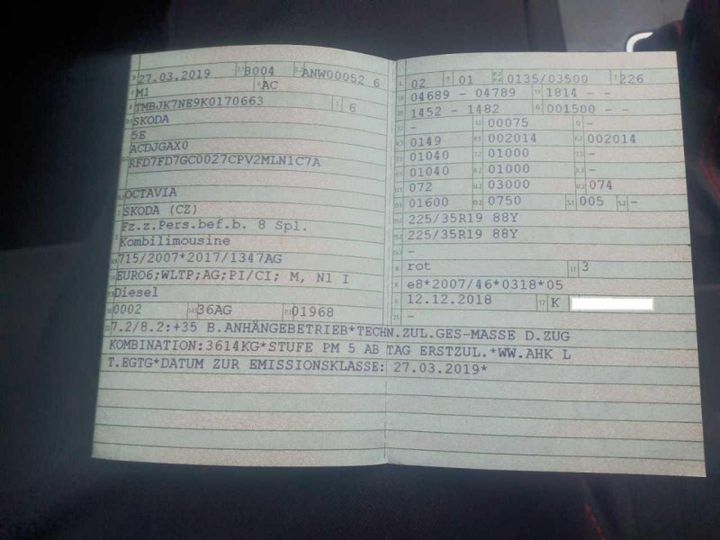 27.03.2019 8004 ANW00052 6
M1 AC
TMBJK7NE9K0170663 6
SKODA
5E
ACDJGAX0
RFD7FD7GC0027CPV2MLN1C7A
OCTAVIA
SKODA (CZ)
Fz.z.Pers.bef.b. 8 Spl.
Kombilimousine
715/2007*2017/1347AG
EURO6;WLTP;AG;PI/CI; M, N1 I
Diesel
0002 36AG 01968
7.2/8.2:+35 B.ANHÄNGEBETRIEB*TECHN.ZUL.GES-MASSE D.ZUG
KOMBINATION:3614KG*STUFE PM 5 AB TAG ERSTZUL.*WW.AHK L
T.EGTG*DATUM ZUR EMISSIONSKLASSE: 27.03.2019*
02 01 0135/03500 226
04689 - 04789 1814 - -
1452 - 1482 001500 - -
- 00075 -
0149 002014 002014
01040 01000 -
01040 01000 -
072 03000 074
01600 0750 005 -
225/35R19 88Y
225/35R19 88Y
-
rot 3
e8*2007/46*0318*05
12.12.2018 K
-